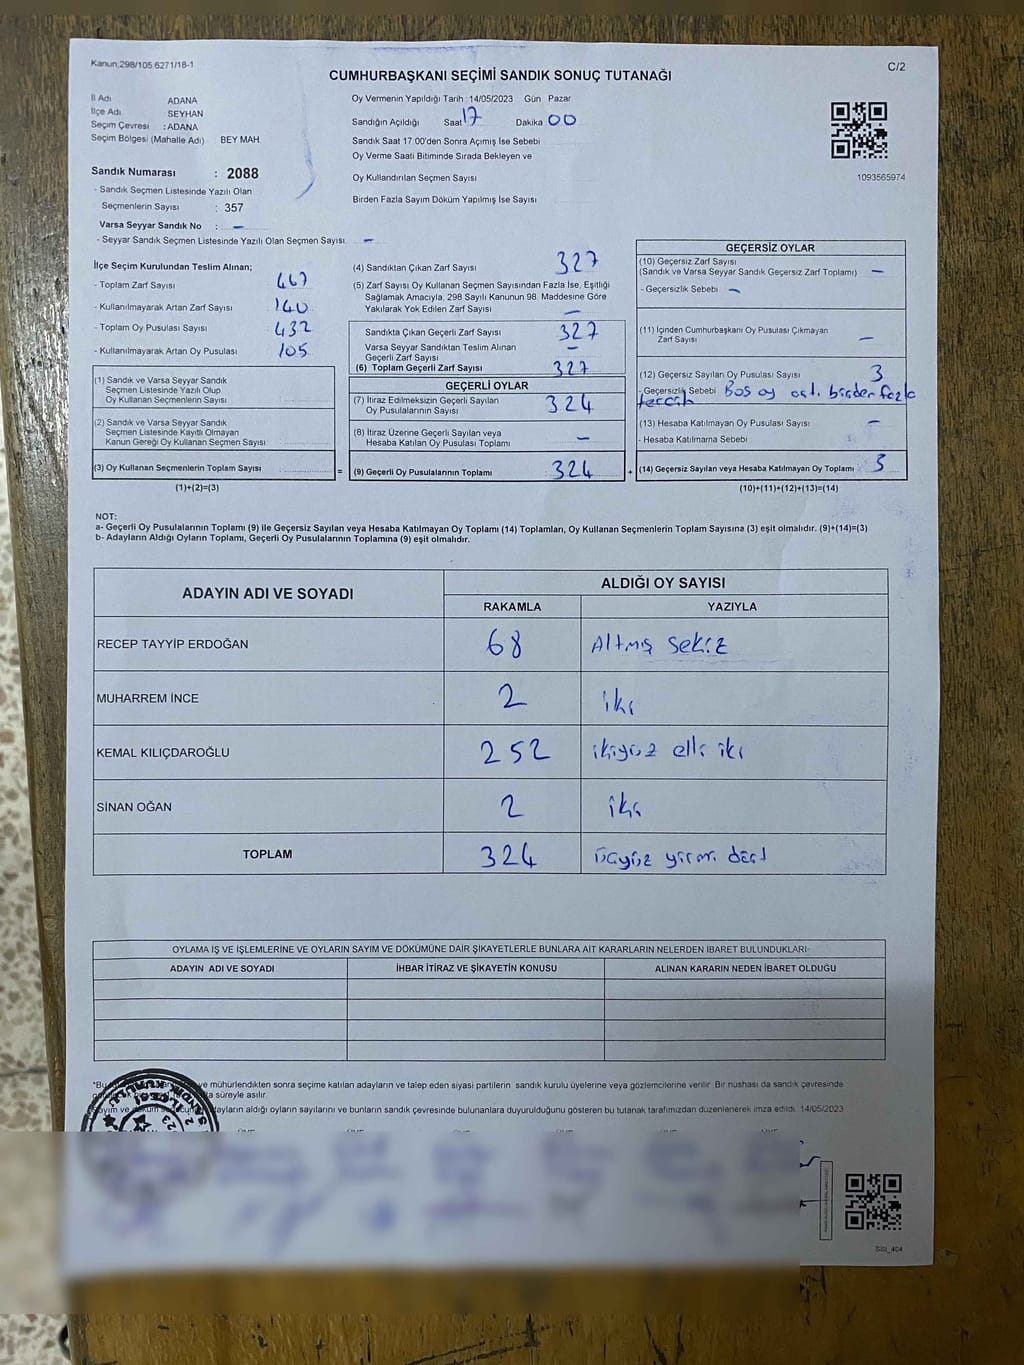 Kanun,298/105 6271/18-1
C/2
CUMHURBAŞKANI SEÇİMİ SANDIK SONUÇ TUTANAĞI
İl Adı ADANA
İlçe Adı SEYHAN
Seçim Çevresi : ADANA
Seçim Bölgesi (Mahalle Adı) BEY MAH
Sandık Numarası : 2088
- Sandık Seçmen Listesinde Yazılı Olan
Seçmenlerin Sayısı : 357
Varsa Seyyar Sandık No : –
- Seyyar Sandık Seçmen Listesinde Yazılı Olan Seçmen Sayısı –
Oy Vermenin Yapıldığı Tarih 14/05/2023 Gün Pazar
Sandığın Açıldığı Saat 17 Dakika 00
Sandık Saat 17.00'den Sonra Açımış İse Sebebi
Oy Verme Saati Bitiminde Sırada Bekleyen ve
Oy Kullandırılan Seçmen Sayısı
Birden Fazla Sayım Döküm Yapılmış İse Sayısı
1093565974
İlçe Seçim Kurulundan Teslim Alınan;
- Toplam Zarf Sayısı 467
- Kullanılmayarak Artan Zarf Sayısı 140
- Toplam Oy Pusulası Sayısı 432
- Kullanılmayarak Artan Oy Pusulası 105
(1) Sandık ve Varsa Seyyar Sandık
Seçmen Listesinde Yazılı Olup
Oy Kullanan Seçmenlerin Sayısı
(2) Sandık ve Varsa Seyyar Sandık
Seçmen Listesinde Kayıtlı Olmayan
Kanun Gereği Oy Kullanan Seçmen Sayısı
(3) Oy Kullanan Seçmenlerin Toplam Sayısı =
(1)+(2)=(3)
(4) Sandıktan Çıkan Zarf Sayısı 327
(5) Zarf Sayısı Oy Kullanan Seçmen Sayısından Fazla İse, Eşitliği
Sağlamak Amacıyla, 298 Sayılı Kanunun 98. Maddesine Göre
Yakılarak Yok Edilen Zarf Sayısı –
Sandıkta Çıkan Geçerli Zarf Sayısı 327
Varsa Seyyar Sandıktan Teslim Alınan
Geçerli Zarf Sayısı –
(6) Toplam Geçerli Zarf Sayısı 327
GEÇERLİ OYLAR
(7) İtiraz Edilmeksizin Geçerli Sayılan
Oy Pusulalarının Sayısı 324
(8) İtiraz Üzerine Geçerli Sayılan veya
Hesaba Katılan Oy Pusulası Toplamı –
(9) Geçerli Oy Pusulalarının Toplamı 324 +
GEÇERSİZ OYLAR
(10) Geçersiz Zarf Sayısı
(Sandık ve Varsa Seyyar Sandık Geçersiz Zarf Toplamı) –
- Geçersizlik Sebebi –
(11) İçinden Cumhurbaşkanı Oy Pusulası Çıkmayan
Zarf Sayısı –
(12) Geçersiz Sayılan Oy Pusulası Sayısı 3
- Geçersizlik Sebebi Boş oy birden fazla
tercih
(13) Hesaba Katılmayan Oy Pusulası Sayısı –
- Hesaba Katılmama Sebebi
(14) Geçersiz Sayılan veya Hesaba Katılmayan Oy Toplamı 3
(10)+(11)+(12)+(13)=(14)
NOT:
a- Geçerli Oy Pusulalarının Toplamı (9) ile Geçersiz Sayılan veya Hesaba Katılmayan Oy Toplamı (14) Toplamları, Oy Kullanan Seçmenlerin Toplam Sayısına (3) eşit olmalıdır. (9)+(14)=(3)
b- Adayların Aldığı Oyların Toplamı, Geçerli Oy Pusulalarının Toplamına (9) eşit olmalıdır.
ADAYIN ADI VE SOYADI ALDIĞI OY SAYISI
RAKAMLA YAZIYLA
RECEP TAYYİP ERDOĞAN 68 Altmış sekiz
MUHARREM İNCE 2 iki
KEMAL KILIÇDAROĞLU 252 ikiyüz elli iki
SİNAN OĞAN 2 iki
TOPLAM 324 üçyüz yirmi dört
OYLAMA İŞ VE İŞLEMLERİNE VE OYLARIN SAYIM VE DÖKÜMÜNE DAİR ŞİKAYETLERLE BUNLARA AİT KARARLARIN NELERDEN İBARET BULUNDUKLARI
ADAYIN ADI VE SOYADI İHBAR İTİRAZ VE ŞİKAYETİN KONUSU ALINAN KARARIN NEDEN İBARET OLDUĞU
*Bu ve mühürlendikten sonra seçime katılan adayların ve talep eden siyasi partilerin sandık kurulu üyelerine veya gözlemcilerine verilir. Bir nüshası da sandık çevresinde
süreyle asılır.
adayların aldığı oyların sayılarını ve bunların sandık çevresinde bulunanlara duyurulduğunu gösteren bu tutanak tarafımızdan düzenlenerek imza edildi. 14/05/2023
SSI_404